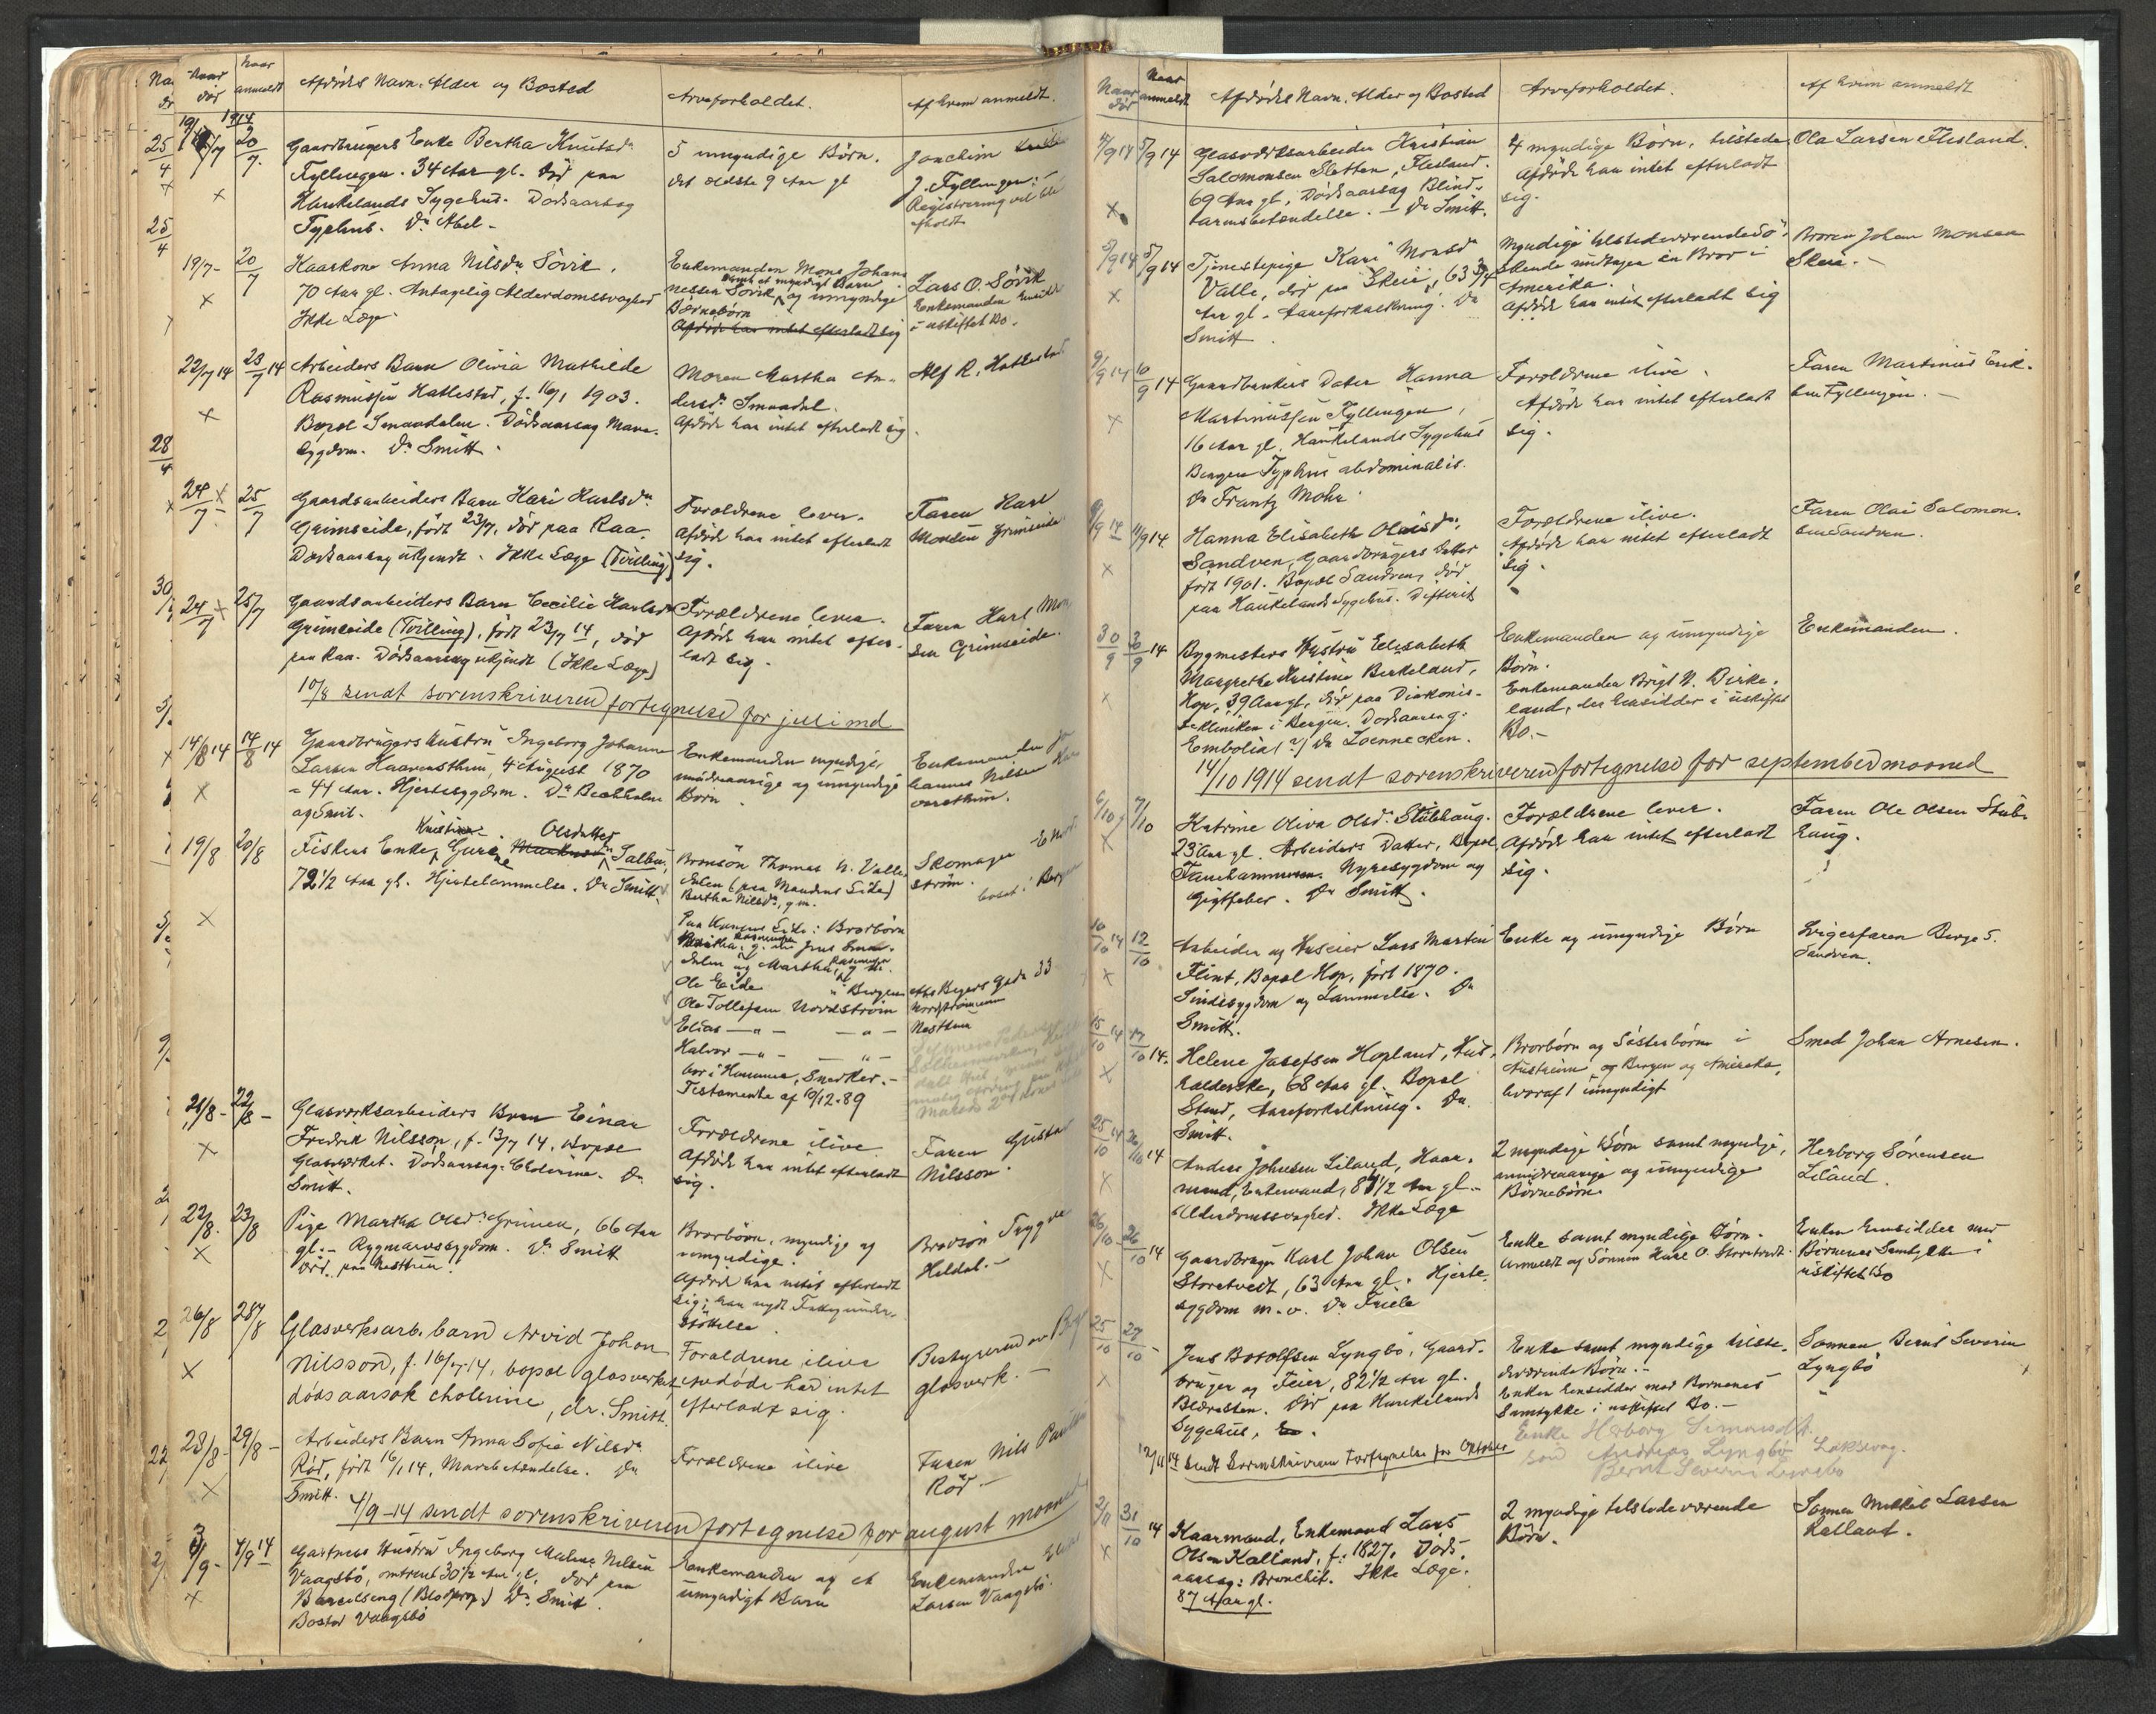 Naar dør
Naar anmeldt
Afdødes Navn, Alder og Bosted
Arveforholdet.
Af hvem anmeldt.
1914
19/7 20/7
Gaardbrugers Enke Bertha Knutsdr
Fyllingen. 34 Aar gl. død paa
Haukelands Sygehus. Dødsaarsag
Typhus. Dr Abel -
5 umyndige Børn.
det ældste 9 Aar gl
Joachim
J. Fyllingen. -
Registrering vil bli
afholdt
19/7- 20/7
Haarkone Anna Nilsdr Søvik.
70 Aar gl. Antagelig Alderdomssvaghed
Ikke Læge
Enkemanden Mons Johan-
nessen Søvik, samt et myndigt Barn og umyndige
Børnebørn
Afdøde har intet efterladt sig
Lars O. Søvik
Enkemanden
i uskiftet Bo.
22/7 14 23/7 14
Arbeiders Barn Olivia Mathilde
Rasmussen Hatlestad, f. 16/1 1903.
Bopæl Smaadalen. Dødsaarsag Mave-
sygdom. Dr Smitt.
Moren Martha An-
dersdr Smaadal.
Afdøde har intet efterladt sig.
Alf R. Hatlestad
24/7 25/7
Gaardsarbeiders Barn Kari Karlsdr
Grimseide, født 23/7, død paa Raa.
Dødsaarsag ukjendt. Ikke Læge (Tvilling)
Forældrene lever.
Afdøde har intet efterladt
sig.
Faren Karl
Monsen Grimseide
24/7 25/7
Gaardsarbeiders Barn Cecilie Karlsdr
Grimseide (Tvilling), født 23/7 14, død
paa Raa. Dødsaarsag ukjendt (Ikke Læge)
Forældrene lever.
Afdøde har intet efter-
ladt sig.
Faren Karl Mon
sen Grimseide.
10/8 sendt sorenskriveren fortegnelse for juli md
14/8 14 14/8 14
Gaardbrugers Hustru Ingeborg Johanne
Larsen Haavardsthun, 4 August 1870
= 44 Aar. Hjertesygdom. Dr Beckholm
og Smit.
Enkemanden myndige,
mindreaarige og umyndige
Børn.
Enkemanden Jo
hannes Nilsen Haa
vardsthun.
19/8 20/8
Kristine Olsdatter
Fiskers Enke, Gurine Salbu,
72 1/2 Aar gl. Hjertelammelse. Dr Smitt.
Brorsøn Thomas N. Valle
dalen (paa Mandens Side)
Bertha Nilsdr, gm.
Skomager
strøm.
bosat i Bergen
Paa Konens Side: Brorbørn
dalen og Martha
Ole Eide " Bergen
Ole Tollefsen Nordstrøm
Elias —"— —"—
Halvor —"— —"—
bor i Hammer, Snedker.-
Testamente af 10/12-89
Nordstrømmen
Nestthun
21/8- 22/8-
Glasværksarbeiders Barn Einar
Fredrik Nilsson, f. 13/7 14. Bopæl
Glasværket. Dødsaarsag: Cholerine. Dr
Smitt.
Forældrene ilive
Afdøde har intet efterladt
sig.
Faren Gustav
Nilsson.
22/8. 23/8
Pige Martha Olsdr Grimen, 66 Aar
gl. - Rygmarvssygdom. Dr Smitt
Død paa Nestthun.
Brorbørn, myndige og
umyndige.
Afdøde har intet efterladt
sig; har nydt Fattigunder-
støttelse
Brodsøn Trygve
Heldal. -
26/8 28/8
Glasverksarb. barn Arvid Johan
Nilsson, f. 16/7-14, bopæl glasverket
dødsaarsak cholerine, dr. Smitt.
Forældrene ilive
Avdøde har intet
efterladt sig.
Bestyreren av
glasverk. -
28/8- 29/8-
Arbeiders Barn Anna Sofie Nilsdr
Rød, født 16/1 14, Mavebetændelse. Dr
Smitt.
Forældrene ilive
Faren Nils
Rød -
4/9-14 sendt sorenskriveren fortegnelse for august maaned
3/9- 4/9 14
Gartners Hustru Ingeborg Malene Nilsen
Vaagsbø, omtrent 30 1/2 Aar gl. død paa
Barselseng (Blodprop) Dr Smitt.
Bosted Vaagsbø
Enkemanden og et
umyndigt Barn
Enkemanden
Larsen Vaagsbø.
Naar dør
Naar anmeldt
Afdødes Navn, Alder og Bosted
Arveforholdet.
Af hvem anmeldt
4/9 14 5/9 14
Glasværksarbeider Kristian
Salomonsen Sletten, Flesland.
69 Aar gl, Dødsaarsag Blind-
tarmsbetændelse. - Dr Smitt.
4 myndige Børn, tilstede
Afdøde har intet efterladt
sig.
Ola Larsen Flesland.
5/9 14 5/9 14
Tjenestepige Kari Monsdr
Valle, død paa Skeie, 63 3/4
Aar gl. Aareforkalkning. Dr
Smitt.
Myndige tilstedeværende Sø-
skende undtagen en Bror i
Amerika.
Afdøde har intet efterladt sig
Broren Johan Monsen
Skeie. -
9/9 14 10/9 14
Gaardbrukers Dater Hanna
Martinussen Fyllingen,
16 Aar gl. Haukelands Sygehus
Bergen Typhus abdominalis.
Dr Frantz Mohr
Forældrene ilive.
Afdøde har intet efterladt
sig.
Faren Martinus Erik-
sen Fyllingen. -
9/9 14 11/9 14.
Hanna Elisabeth Olaisdr.
Sandven, Gaardbrugers Datter
født 1901. Bopæl Sandven, død
paa Haukelands Sygehus. Difterit
Forældrene ilive.
Afdøde har intet efterladt
sig.
Faren Olai Salomon-
sen Sandven.
30/9 30/9 14
Bygmesters Hustru Elisabeth
Margrethe Kristine Birkeland,
Hop, 39 Aar gl, død paa Diakonis-
seklinikken i Bergen. Dødsaarsag:
Embolia (?) Dr Loennecken.
Enkemanden og umyndige
Børn.
Enkemanden Brigt N. Birke-
land, der hensidder i uskiftet
Bo. -
Enkemanden.
14/10 1914 sendt sorenskriveren fortegnelse for september maaned
6/10 7/10
Katrine Oliva Olsdr Stubhaug.
23 Aar gl. Arbeiders Datter, Bopæl
Fanehammeren. Nyresygdom og
Gigtfeber. Dr Smitt.
Forældrene lever.
Afdøde har intet efterladt
sig.
Faren Ole Olsen Stub-
haug.
10/10 14 12/10
Arbeider og Huseier Lars Martin
Flint, Bopæl Hop, født 1870.
Sindssygdom og Lammelse. Dr
Smitt.
Enke og umyndige Børn
Svigerfaren Berge S.
Sandven.
15/10 14 17/10 14.
Helene Josefsen Hopland, Hus-
holderske, 68 Aar gl. Bopæl
Stend, Aareforkalkning. Dr
Smitt.
Brorbørn og Søsterbørn i
Austrheim og Bergen og Amerika,
hvoraf 1 umyndigt
Smed Johan Arnesen.
25/10 14 26/10 14
Anders Johnsen Liland, Haar-
mand, Enkemand, 87 1/2 Aar gl.-
Alderdomssvaghed. Ikke Læge
2 myndige Børn samt myndige,
mindreaarige og umyndige
Børnebørn.
Herborg Sørensen
Liland.
26/10 26/10 14
Gaardbruger Karl Johan Olsen
Storetvedt, 63 Aar gl. Hjerte-
sygdom m.v. Dr Friele
Enke samt myndige Børn.
Anmeldt af Sønnen Karl O. Storetvedt.
Enken hensidder med
Børnenes Samtykke i
uskiftet Bo
25/10 27/10 -
Jens Botolfsen Lyngbø, Gaard-
bruger og Feier, 82 1/2 Aar gl.
Blæresten. Død paa Haukelands
Sygehus.
Enke samt myndige tilste-
deværende Børn. -
Enken hensidder med Børnenes
Samtykke i uskiftet Bo. -
Sønnen Bernt Severin
Lyngbø
Enke Herborg Simonsdtr.
søn Andreas Lyngbø Laksevaag.
Bernt Severin Lyngbø
12/11 14 sendt Sorenskriveren Fortegnelse for Oktober
2/11 31/10 14
Kaarmand, Enkemand Lars
Olsen Kalland, f. 1827. Døds-
aarsag: Bronchit. Ikke Læge.
87 Aar gl.
2 myndige tilstedeværende
Børn.
Sønnen Mikkel Larsen
Kalland.